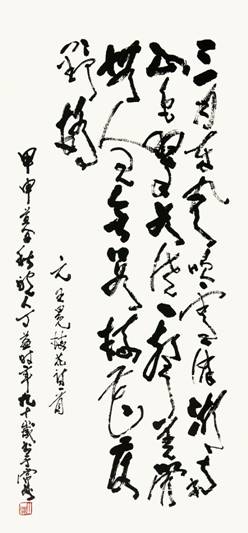 三月东风吹雪消湖南
山色翠如浇一声羌管
無人见无数梅花落
野橋
元王冕梅花诗一首
甲申 秋 人 时年九十歲